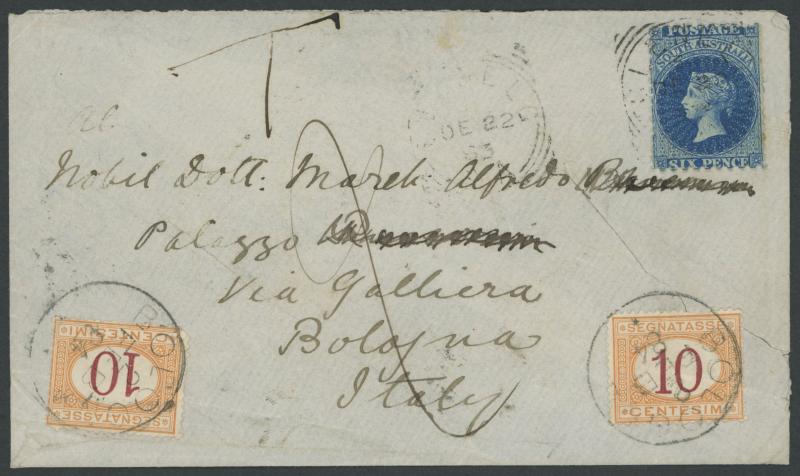 T
POSTAGE
SOUTH AUSTRALIA
SIX PENCE
DE 22
al
Nobil Dott. March Alfredo
Palazzo
Via Galliera
Bologna
Italy
SEGNATASSE
10
CENTESIMI
SEGNATASSE
10
CENTESIMI